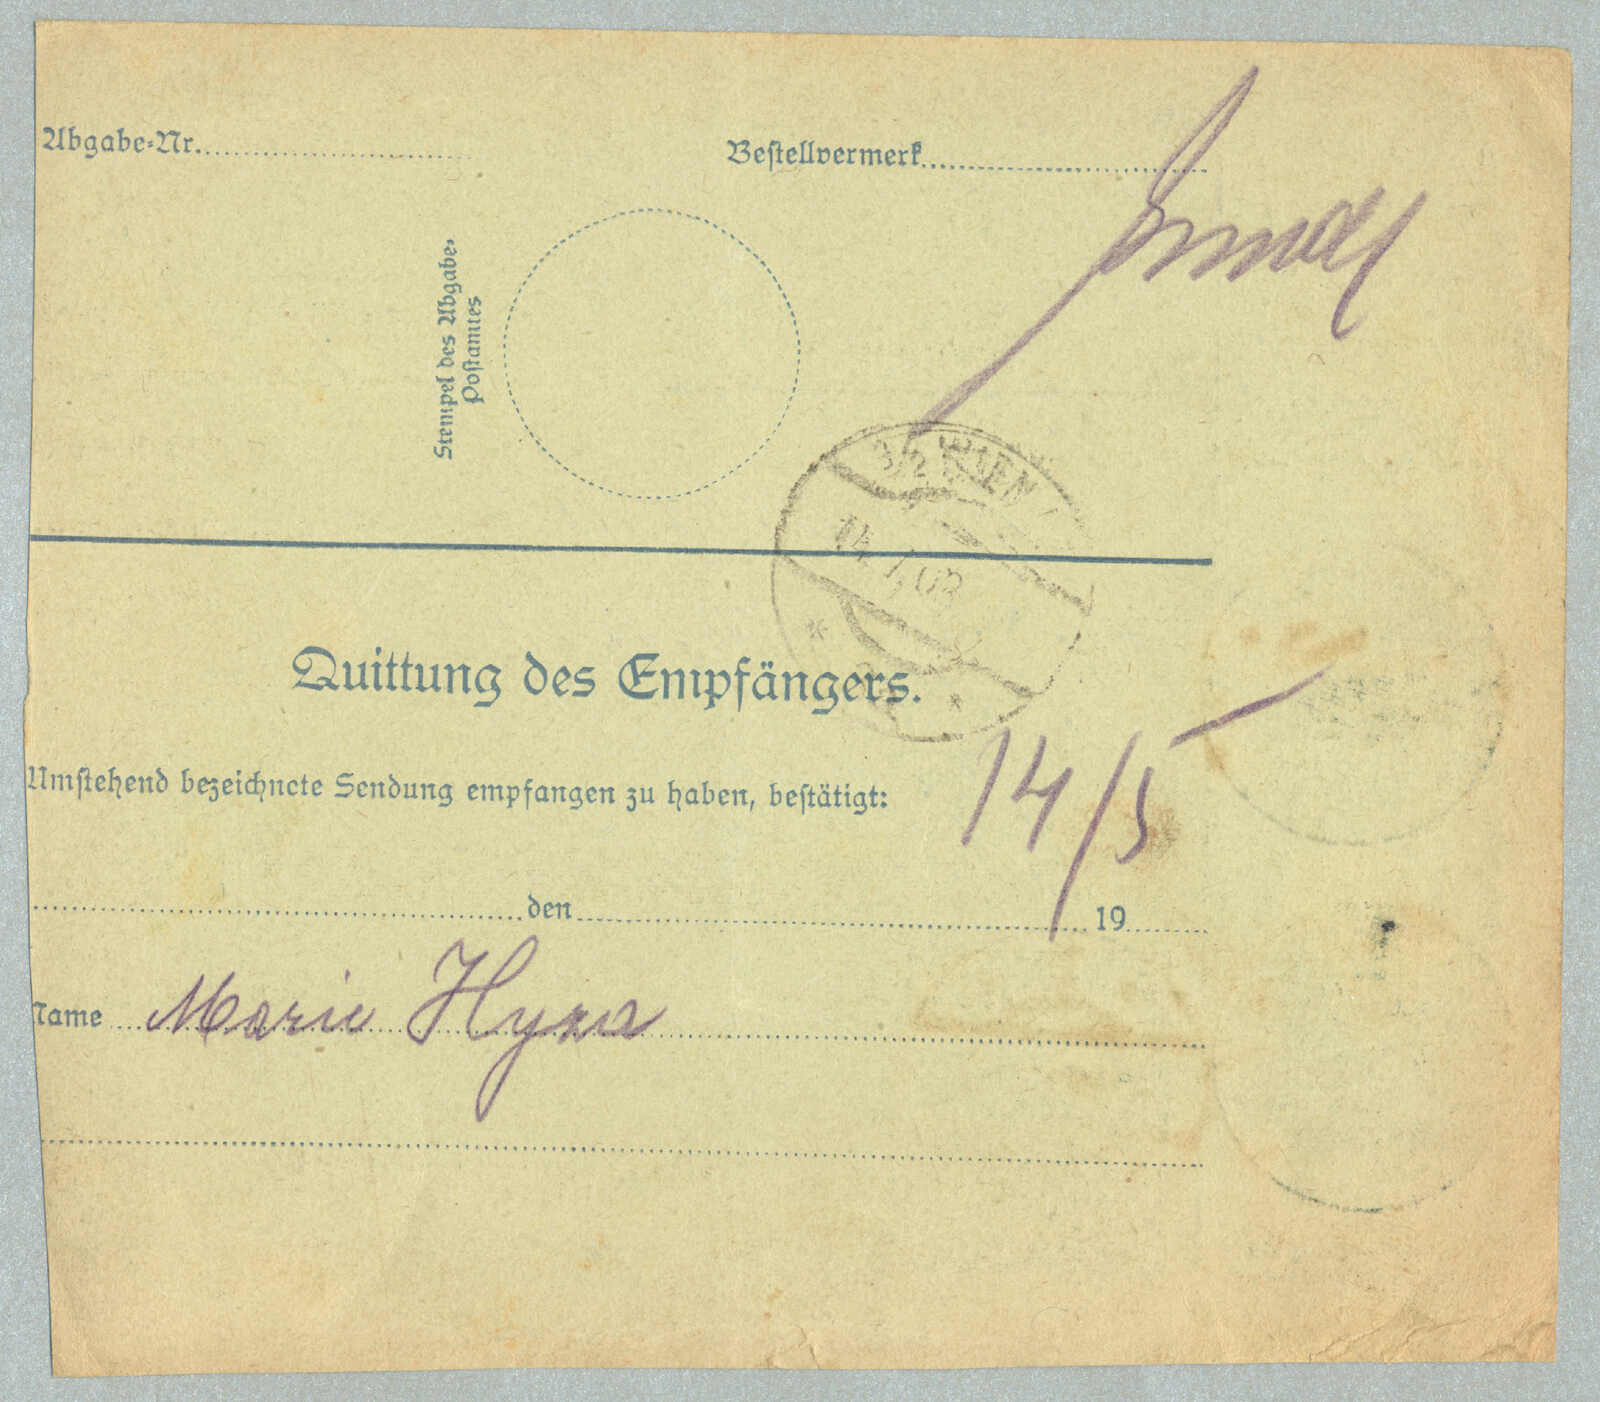 Abgabe-Nr.
Bestellvermerk
Stempel des Abgabe-
Postamtes
3/2 WIEN
14
Quittung des Empfängers.
Umstehend bezeichnete Sendung empfangen zu haben, bestätigt:
14/5
den 19
Name Marie